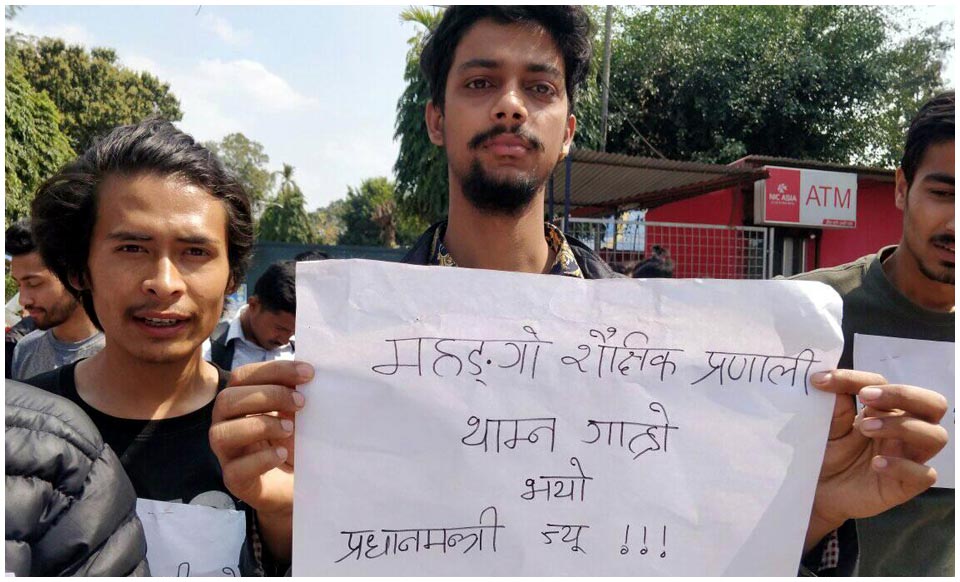 NIC ASIA
ATM
महङ्गो शैक्षिक प्रणाली
थाम्न गाह्रो
भयो
प्रधानमन्त्री ज्यू !!!